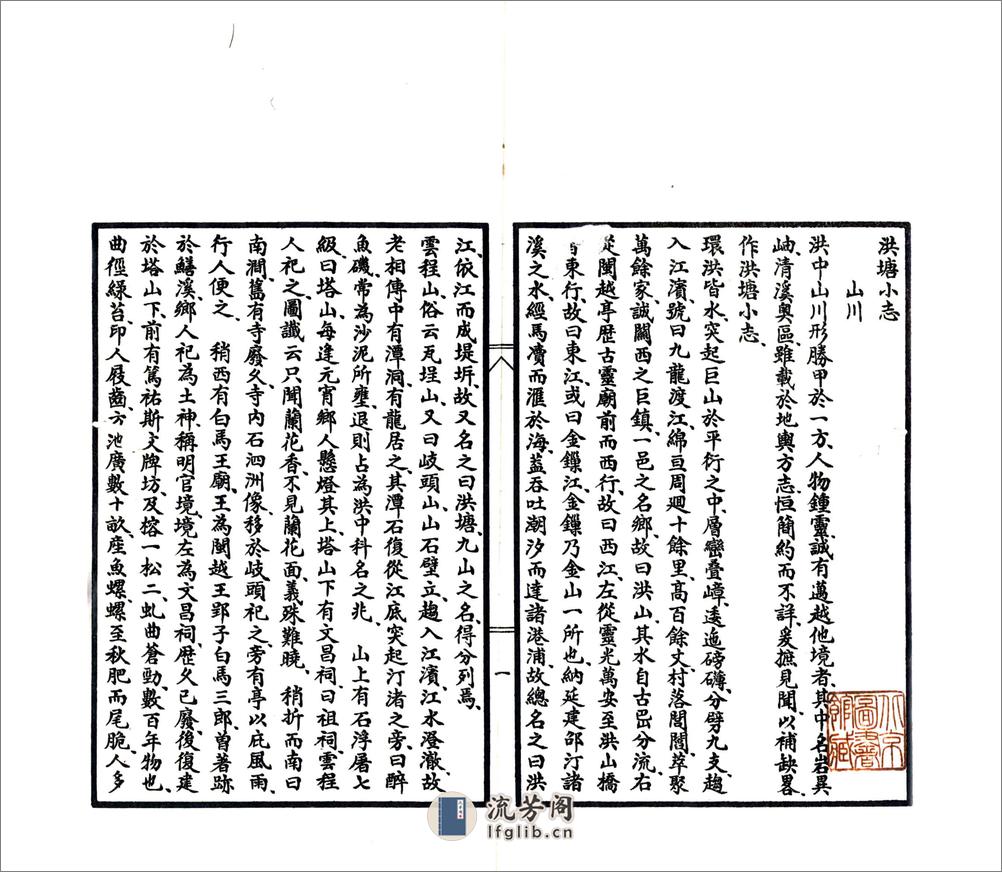 洪塘小志
山川
洪中山川形勝甲於一方、人物鍾靈、誠有邁越他境者、其中名岩異
岫、清溪奧區、雖載於地輿方志、恒簡約而不詳、爰摭見聞、以補缺畧
作洪塘小志、
環洪皆水、突起巨山於平衍之中、層巒叠嶂、逶迤磅礴、分劈九支、趨
入江濱、號曰九龍渡江、綿亘周廻十餘里、高百餘丈、村落閭閻、萃聚
萬餘家、誠關西之巨鎮、一邑之名鄉、故曰洪山、其水自古岊分流、右
從閩越亭歷古靈廟前而西行、故曰西江、左從靈光萬安至洪山橋
東行、故曰東江、或曰金鏁江、金鏁乃金山一所也、納延建邵汀諸
溪之水、經馬瀆而滙於海、葢吞吐潮汐而達諸港浦、故總名之曰洪
江、依江而成堤圻、故又名之曰洪塘、九山之名、得分列焉、
雲程山、俗云瓦埕山、又曰岐頭山、山石壁立、趨入江濱、江水澄澈、故
老相傳中有潭洞、有龍居之、其潭石復從江底突起汀渚之旁、曰醉
魚磯、常為沙泥所壅、退則占為洪中科名之兆、 山上有石浮屠七
級、曰塔山、每逢元宵、鄉人懸燈其上、塔山下有文昌祠、曰祖祠、雲程
人祀之、圖讖云、只聞蘭花香、不見蘭花面、義殊難曉、 稍折而南曰
南澗、舊有寺廢久、寺內石泗洲像、移於岐頭祀之、旁有亭、以庇風雨、
行人便之、 稍西有白馬王廟、王為閩越王郢子白馬三郎、曽著跡
於鱔溪、鄉人祀為土神、稱明官境、境左為文昌祠、歷久已廢、後復建
於塔山下、前有篤祐斯文牌坊、及榕一松二、虬曲蒼勁、數百年物也、
曲徑綠苔、印人屐齒、方池廣數十畝、産魚螺、螺至秋肥而尾脆、人多
一
北京圖書館藏
流芳阁
lfglib.cn